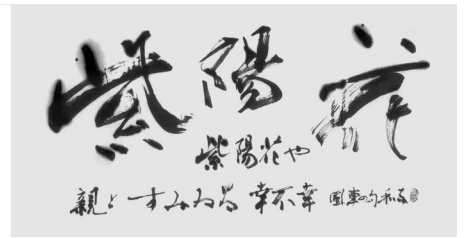 紫陽花
紫陽花や
親とすみゐる 幸不幸